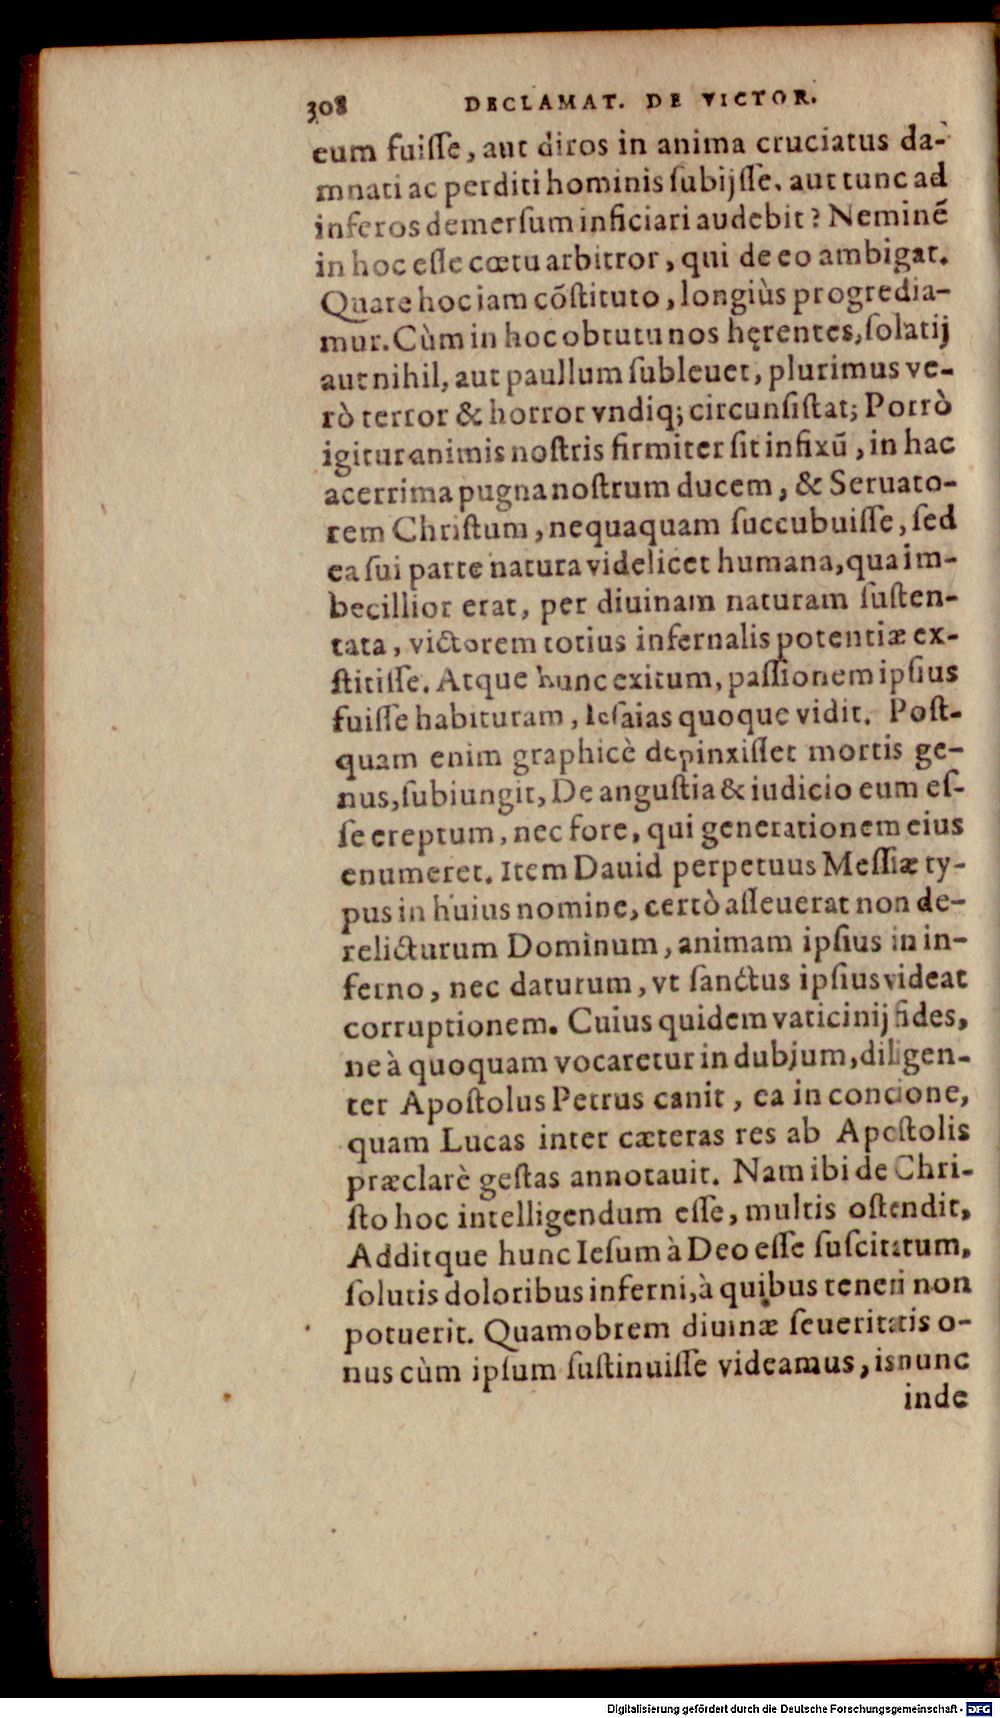 308 DECLAMAT. DE VICTOR.
eum fuiſſe, aut diros in anima cruciatus da-
mnati ac perditi hominis ſubijſſe, aut tunc ad
inferos demerſum inficiari audebit? Neminẽ
in hoc eſſe cœtu arbitror, qui de eo ambigat.
Quare hoc iam cõſtituto, longiùs progredia-
mur. Cùm in hoc obtutu nos hęrentes, ſolatij
aut nihil, aut paullum ſubleuet, plurimus ve-
rò terror & horror vndiq; circunſiſtat; Porrò
igitur animis noſtris firmiter ſit infixũ, in hac
acerrima pugna noſtrum ducem, & Seruato-
rem Chriſtum, nequaquam ſuccubuiſſe, ſed
ea ſui parte natura videlicet humana, qua im-
becillior erat, per diuinam naturam ſuſten-
tata, victorem totius infernalis potentiæ ex-
ſtitiſſe. Atque hunc exitum, paſſionem ipſius
fuiſſe habituram, Ieſaias quoque vidit. Poſt-
quam enim graphicè depinxiſſet mortis ge-
nus, ſubiungit, De anguſtia & iudicio eum eſ-
ſe ereptum, nec fore, qui generationem eius
enumeret. Item Dauid perpetuus Meſſiæ ty-
pus in huius nomine, certò aſſeuerat non de-
relicturum Dominum, animam ipſius in in-
ferno, nec daturum, vt ſanctus ipſius videat
corruptionem. Cuius quidem vaticinij fides,
ne à quoquam vocaretur in dubium, diligen-
ter Apoſtolus Petrus canit, ea in concione,
quam Lucas inter cæteras res ab Apoſtolis
præclarè geſtas annotauit. Nam ibi de Chri-
ſto hoc intelligendum eſſe, multis oſtendit,
Additque hunc Ieſum à Deo eſſe ſuſcitatum,
ſolutis doloribus inferni, à quibus teneri non
potuerit. Quamobrem diuinæ ſeueritatis o-
nus cùm ipſum ſuſtinuiſſe videamus, is nunc
inde
Digitalisierung gefördert durch die Deutsche Forschungsgemeinschaft - DFG